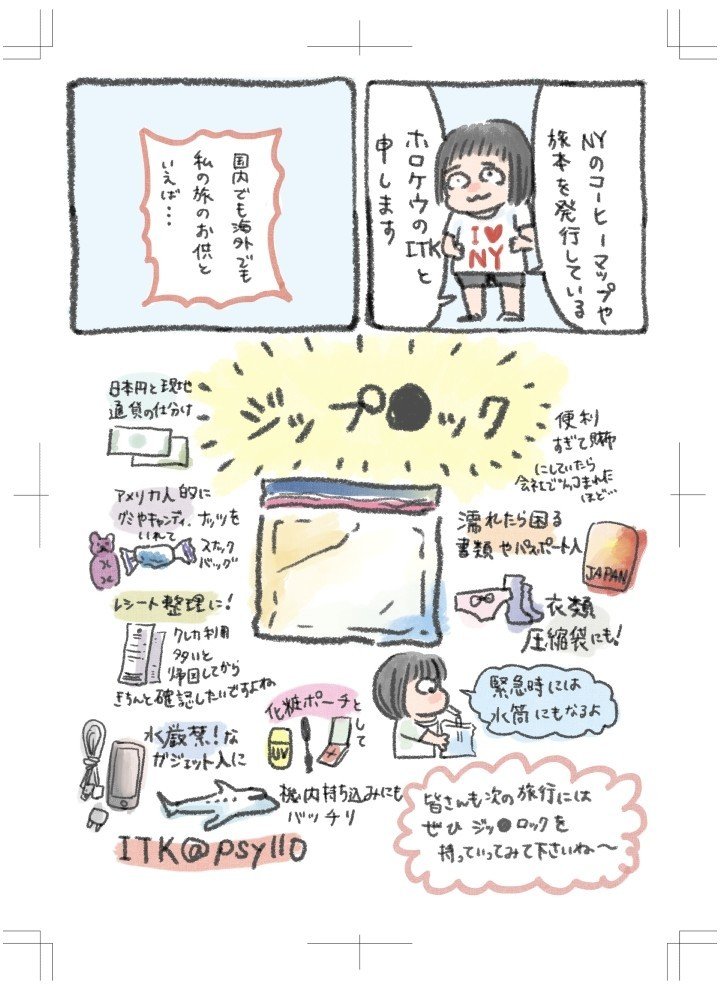 NYのコーヒーマップや
旅本を発行している
I ♥
NY
ホロケウのITKと
申します
国内でも海外でも
私の旅のお供と
いえば・・・
ジップ●ック
日本円と現地
通貨の仕分け
アメリカ人的に
グミやキャンディ、ナッツを
いれて
スナック
バッグ
レシート整理に!
クレカ利用
多いと
帰国してから
きちんと確認したいですよね
水厳禁!な
ガジェット入に
便利
すぎて財布
にしていたら
会社でツッコまれた
ほど…
濡れたら困る
書類やパスポート入
JAPAN
衣類
圧縮袋にも!
化粧ポーチと
して
UV
緊急時には
水筒にもなるよ
機内持ち込みにも
バッチリ
ITK@psyllo
皆さんも次の旅行には
ぜひ ジッ●ロックを
持っていってみて下さいね〜